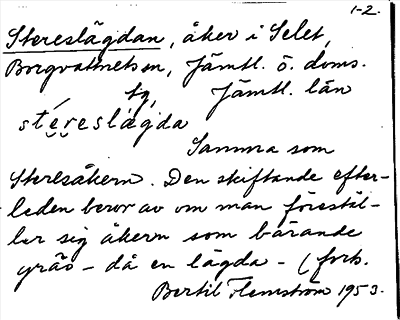 1-2.
Stereslägdan, åker i Selet,
Borgvattnets sn, Jämtl. ö. doms.
tg, Jämtl. län
stéreslägda
Samma som
Steresåkern. Den skiftande efter-
leden beror av om man förestäl-
ler sig åkern som bärande
gräs - då en lägda - (forts.
Bertil Flemström 1953.